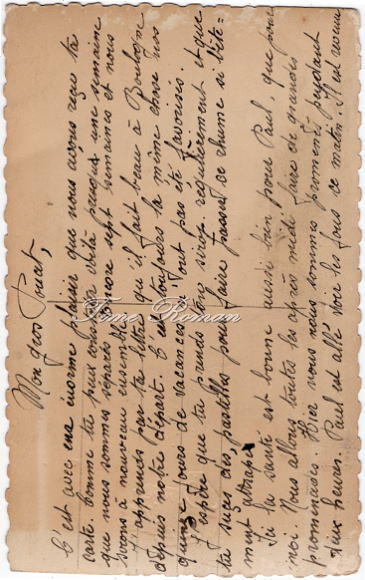 Mon gros Pucat,
C'est avec une énorme plaisir que nous avons reçu ta
carte. Comme tu peux constater voilà presque une semaine
que nous sommes séparés encore sept semaines et nous
serons à nouveau ensemble.
J'apprends par ta lettre qu'il fait beau à Boulogne
depuis notre départ. C'est toujours la même chose nos
quinze jours de vacances n'ont pas été favorisés.
J'espère que tu prends ton sirop régulièrement et que
tu suces des pastilles pour faire passer ce rhume si bête-
ment attrapé.
Ici la santé est bonne aussi bien pour Paul, que pour
moi. Nous allons toutes les après midi faire de grandes
promenades. Hier nous nous sommes promenés pendant
deux heures. Paul est allé voir les fous ce matin. Il est
Tome Roman